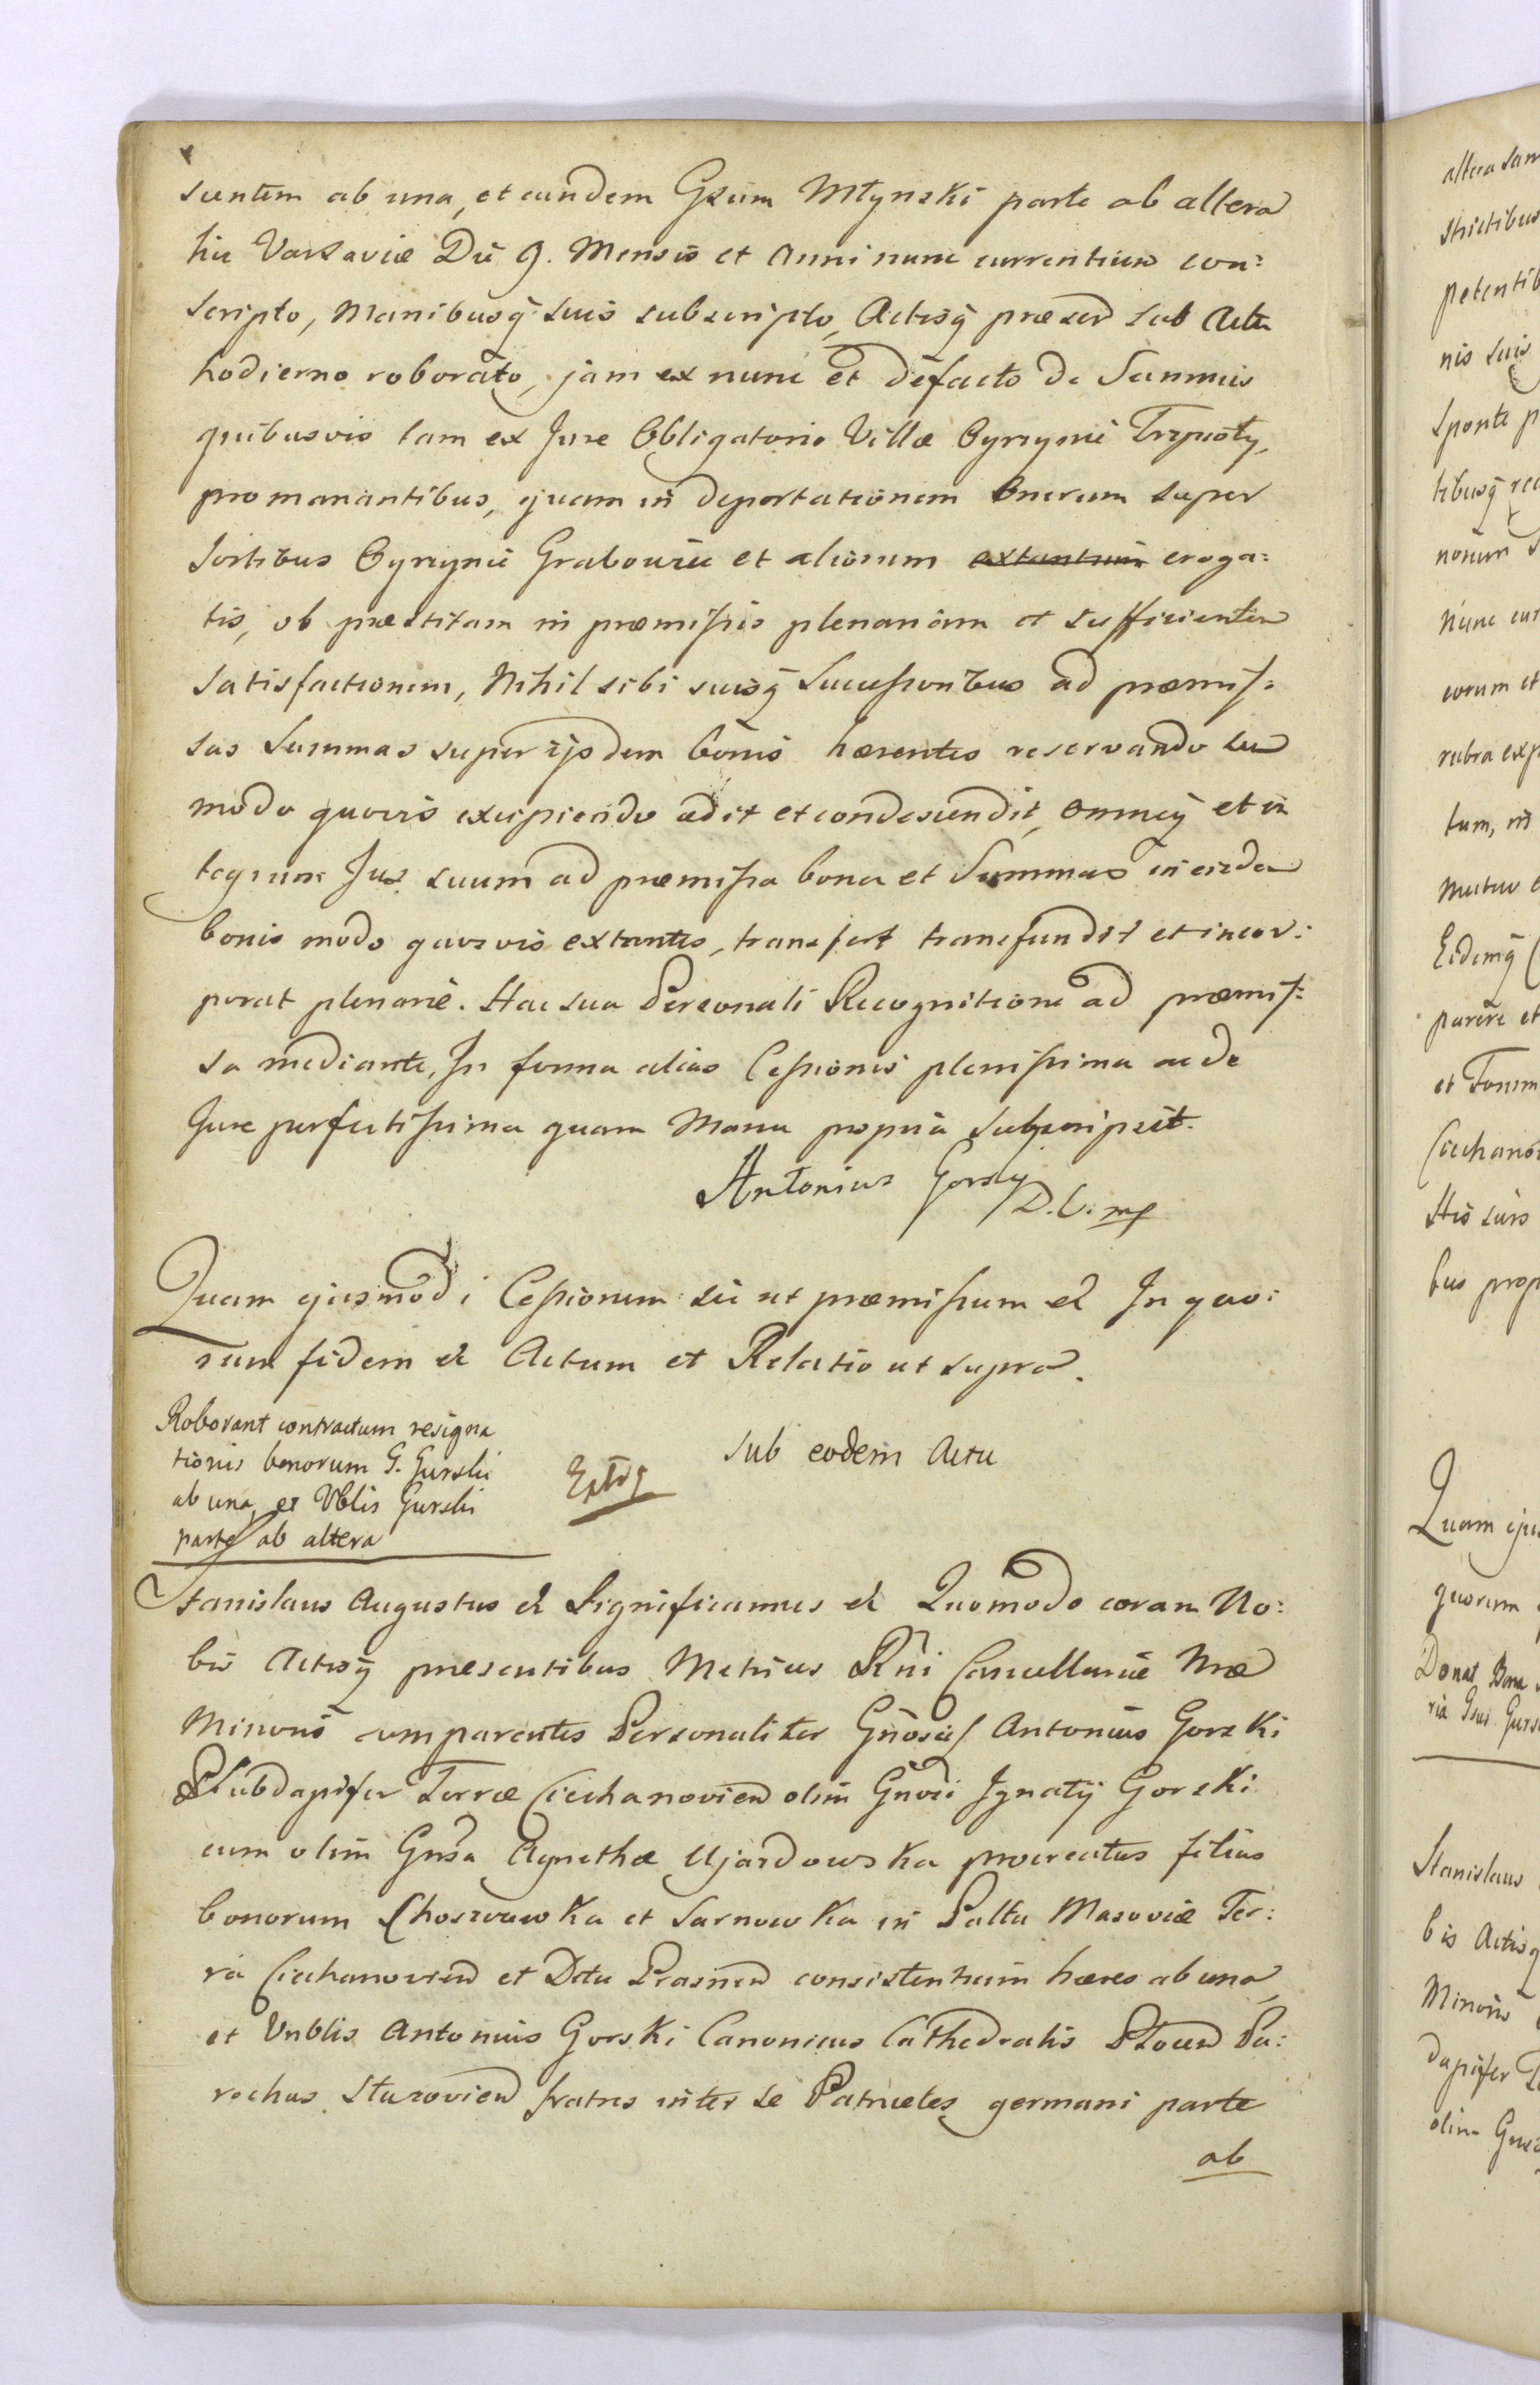 suntem ab una, et eundem Gsum Młynski parte ab altera
hic Varsaviæ Die 9. Mensis et Anni nunc currentium con:
scripto, Manibusq̃ suis subscripto, Actisq̃ præsen̄ sub Actu
hodierno roborato, jam ex nunc et defacto de Summis
quibusvis tam ex Jure Obligatorio Villæ
promanantibus, quam in deportationem Onerum super
Sortibus et aliorum extantium eroga:
tis, ob præstitam in præmissis plenariam et sufficientem
satisfactionem, Nihil sibi suisq̃ Successoribus ad præmis:
sas Summas super ijsdem bonis hærentes reservando seu
modo quovis excipiendo cedit et condescendit, omneq̃ et in
tegrum Jus suum ad præmissa bona et Summas in eisdem
bonis modo quovis extantes, transfert transfundit et incor:
porat plenarie. Hac sua Personali Recognitione ad præmis:
sa mediante, In forma alias Cessionis plenissima ac de
Jure perfectissima quam Manu propria subscripsit.
Antonius Gorsky
D. C. mp
Quam ejusmodi Cessionem sic ut præmissum est In quo:
rum fidem et Actum et Relatio ut supra.
Roborant contractum resigna
tionis bonorum G. Gurski
ab una, et Vblis Gurski
parte ab altera
Sub eodem Actu
Stanislaus Augustus et Significamus et Quomodo coram No:
bis Actisq̃ præsentibus Metrices Rñi Cancellariæ Nræ
Minoris comparentes Personaliter Gñosus Antonius Gorski
Subdapifer Terræ Ciechanovien̄ olim Gñosi Ignatij Gorski
cum olim Gnsa Agnetha Ujazdowska procreatus filius
bonorum Choszczewka et Sarnowka in Palttu Masoviæ Ter:
ra Ciechanovien̄ et Dttu Prasnen̄ consistentium hæres ab una,
et Vnblis Antonius Gorski Canonicus Cathedralis Płocen̄ Pa:
rochus fratres inter se Patrueles germani parte
ab
altera
strictibus
nis suis
sponte p
tibusq̃ rec
norum
nunc cur
eorum et
tum, in
Eidemq̃
parere et
et
Stis suis
bus prop
Quam eju
quorum
Donat Bona
Stanislaus
bis Actisq̃
Minoris
dapifer
olim